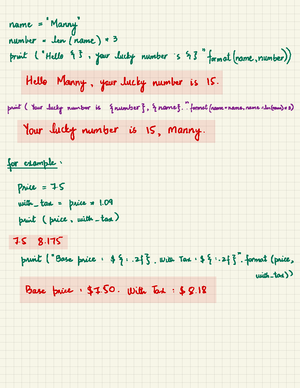 name = "Manny"
number = len (name) * 3
print ("Hello { }, your lucky number is { }" format (name, number))
Hello Manny, your lucky number is 15.
print ( Your lucky number is {number}, {name}." format (name = name, name = len(name)*3)
Your lucky number is 15, Manny.
for example :
Price = 7.5
with_tax = price * 1.09
print (price, with_tax)
7.5 8.175
print ("Base price : $ { : .2f}. With Tax : $ { : .2f}". format (price,
with_tax))
Base price : $7.50. With Tax : $ 8.18